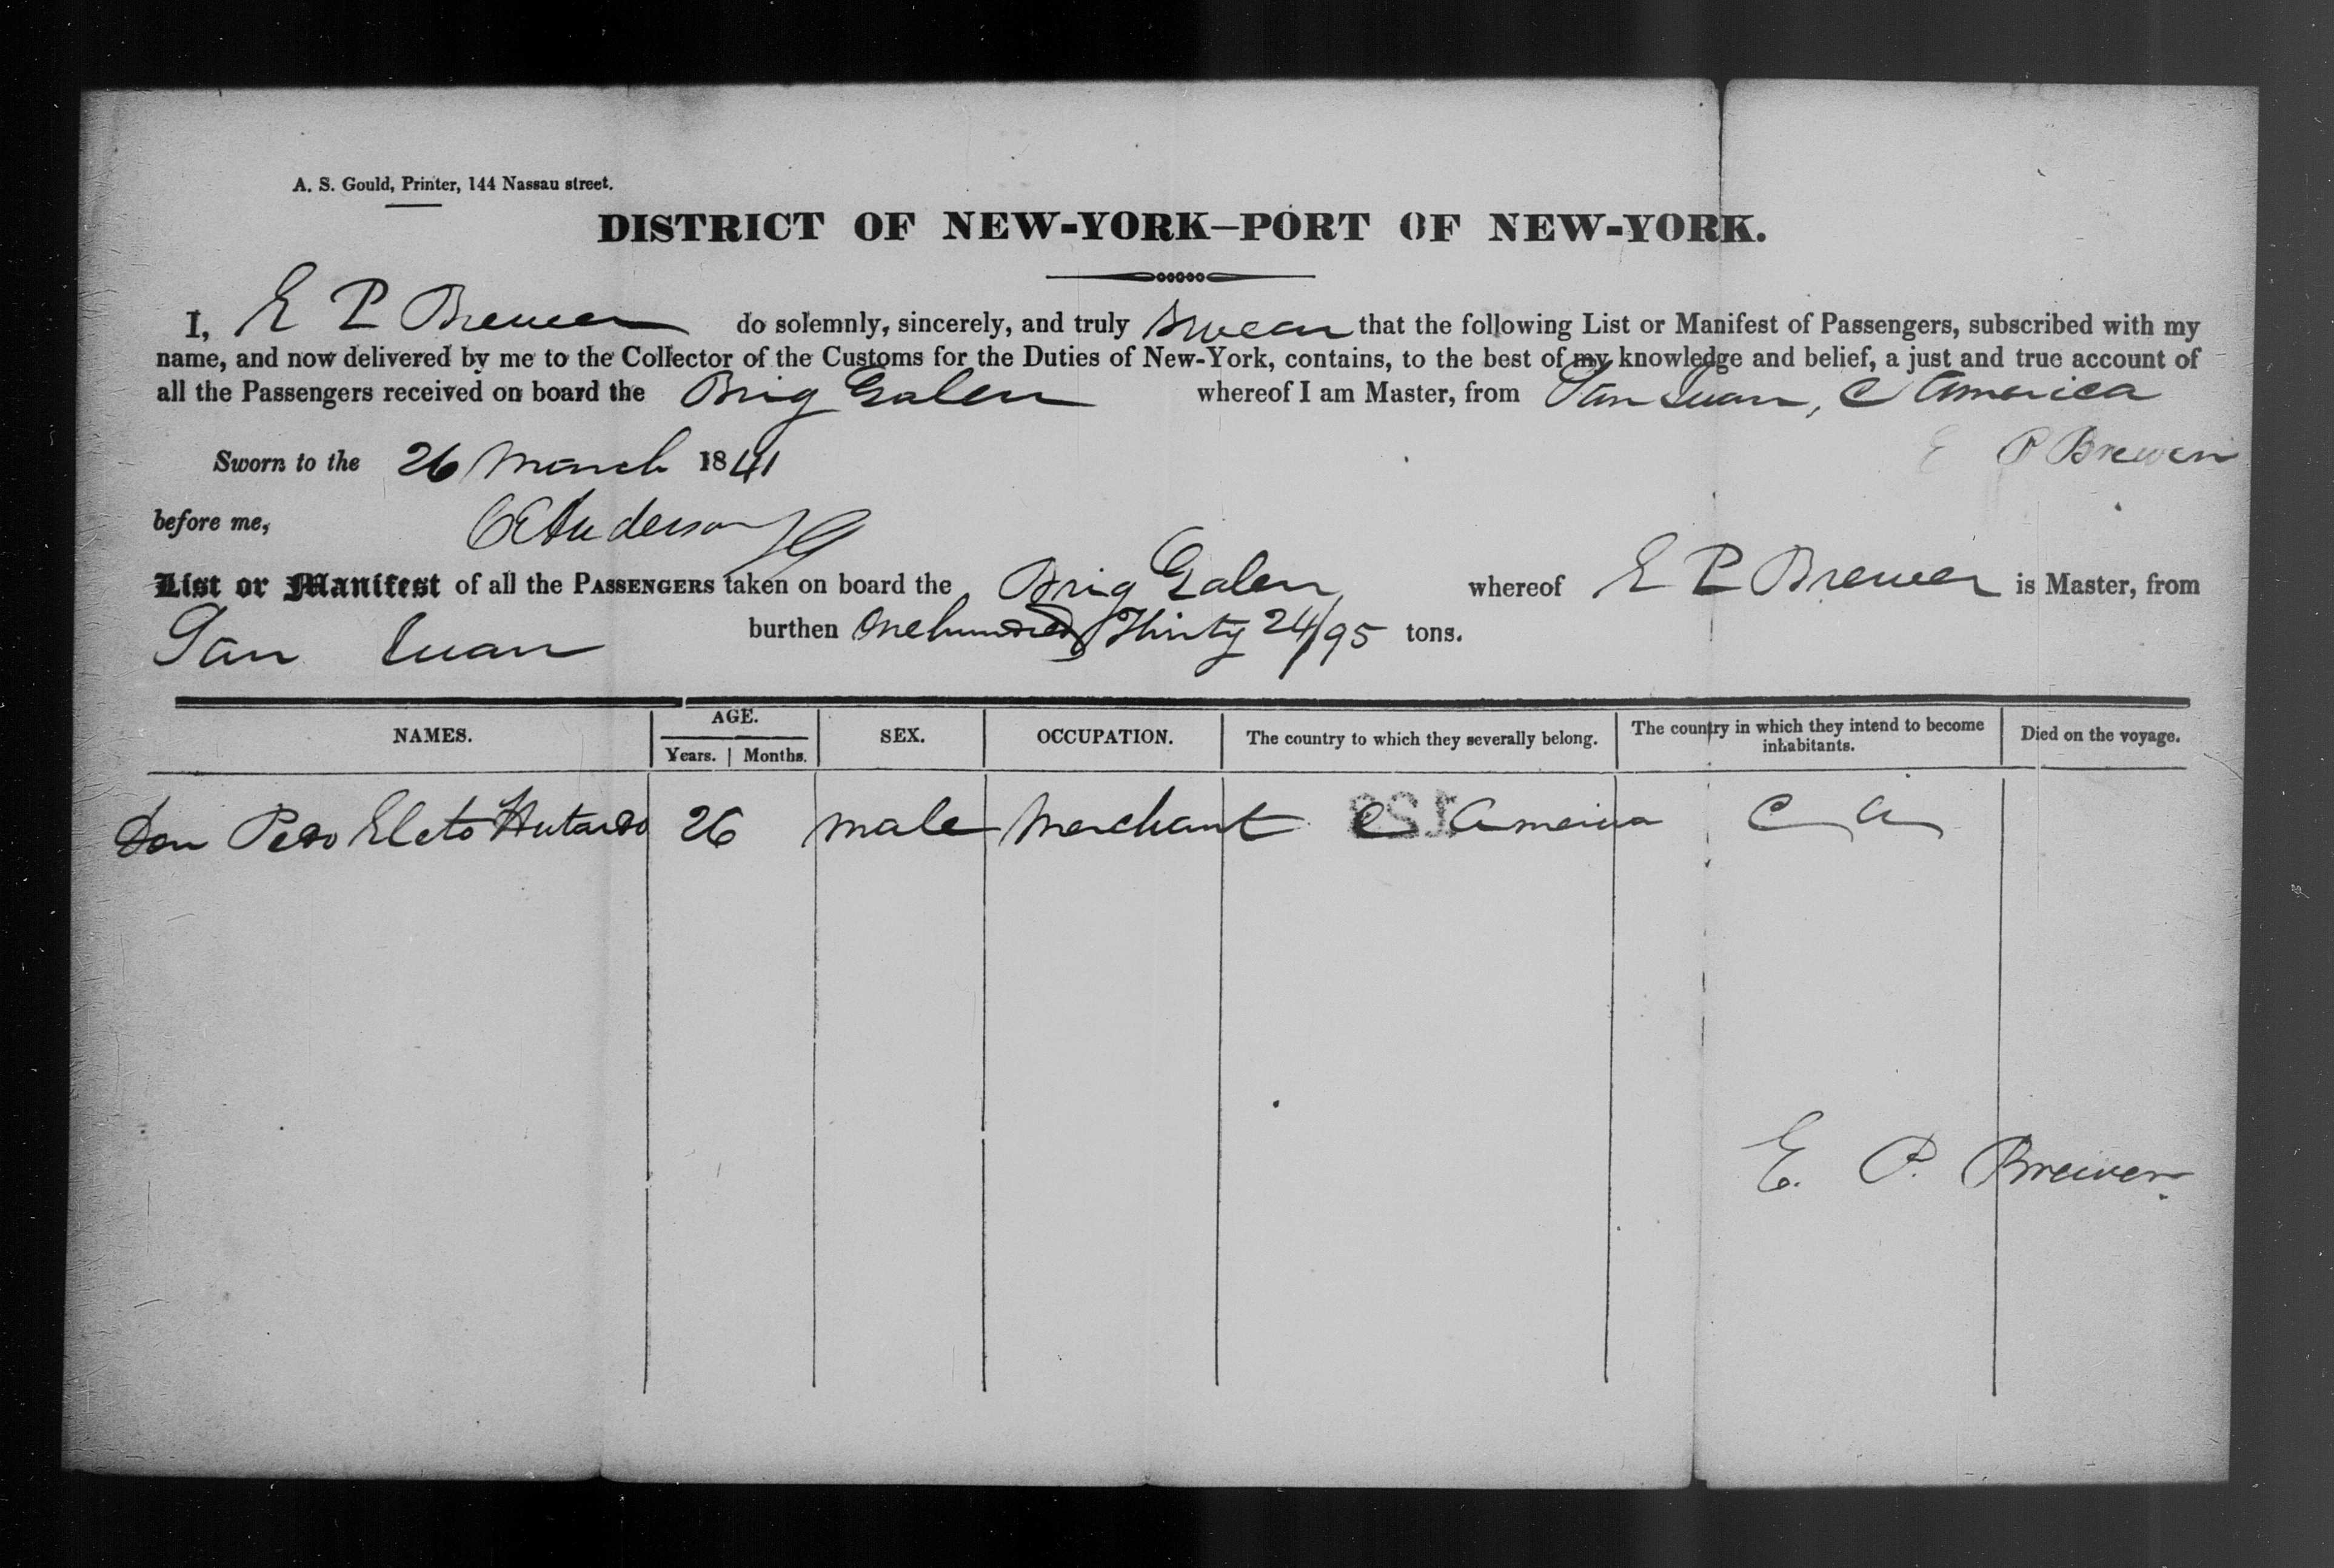 A. S. Gould, Printer, 144 Nassau street.
DISTRICT OF NEW-YORK—PORT OF NEW-YORK.
I, E P Brewer do solemnly, sincerely, and truly Swear that the following List or Manifest of Passengers, subscribed with my
name, and now delivered by me to the Collector of the Customs for the Duties of New-York, contains, to the best of my knowledge and belief, a just and true account of
all the Passengers received on board the Brig Galen whereof I am Master, from San Juan, C America
Sworn to the 26 March 1841 E P Brewer
before me, Anderson
List or Manifest of all the PASSENGERS taken on board the Brig Galen whereof E P Brewer is Master, from
San Juan burthen One hundred Thirty 24/95 tons.
NAMES. AGE. Years. Months. SEX. OCCUPATION. The country to which they severally belong. The country in which they intend to become inhabitants. Died on the voyage.
Don Pedro Hurtardo 26 male Merchant C America C A
E. P. Brewer.